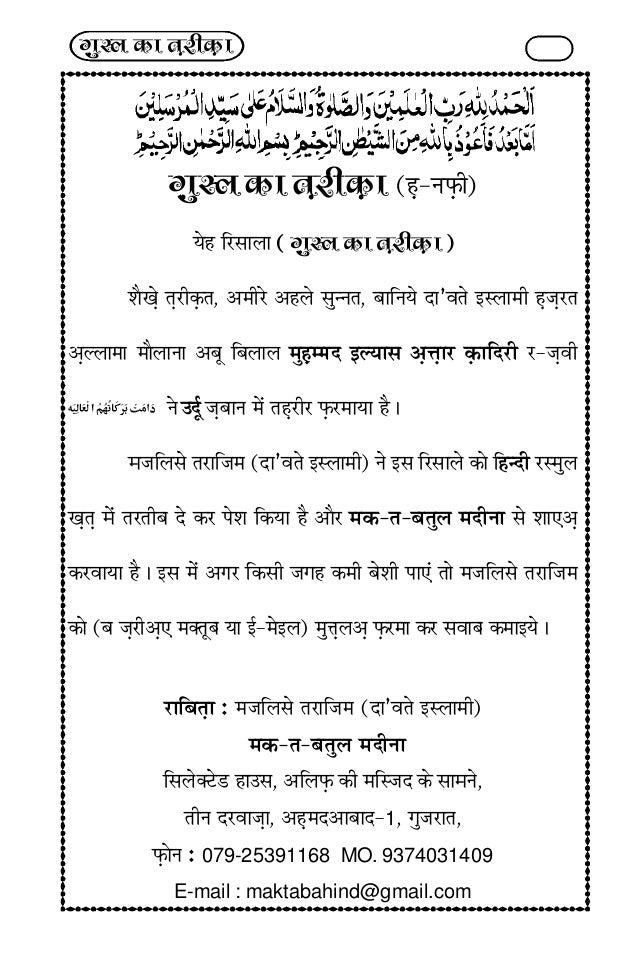 ग़ुस्ल का त़रीक़ा
اَلْحَمْدُ لِلّٰهِ رَبِّ الْعٰلَمِيْنَ وَالصَّلٰوةُ وَالسَّلَامُ عَلٰى سَيِّدِ الْمُرْسَلِيْنَ
اَمَّا بَعْدُ فَاَعُوْذُ بِاللّٰهِ مِنَ الشَّيْطٰنِ الرَّجِيْمِ ؕ بِسْمِ اللّٰهِ الرَّحْمٰنِ الرَّحِيْمِ ؕ
ग़ुस्ल का त़रीक़ा (ह़-नफ़ी)
येह रिसाला ( ग़ुस्ल का त़रीक़ा )
शैखे़ त़रीक़त, अमीरे अहले सुन्नत, बानिये दा'वते इस्लामी ह़ज़रत
अ़ल्लामा मौलाना अबू बिलाल मुह़म्मद इल्यास अ़त्त़ार क़ादिरी र-ज़वी
دَامَتْ بَرَكَاتُهُمُ الْعَالِيَه ने उर्दू ज़बान में तह़रीर फ़रमाया है।
मजलिसे तराजिम (दा'वते इस्लामी) ने इस रिसाले को हिन्दी रस्मुल
ख़त़ में तरतीब दे कर पेश किया है और मक-त-बतुल मदीना से शाएअ़
करवाया है। इस में अगर किसी जगह कमी बेशी पाएं तो मजलिसे तराजिम
को (ब ज़रीअ़ए मक्तूब या ई-मेइल) मुत्त़लअ़ फ़रमा कर सवाब कमाइये।
राबित़ा : मजलिसे तराजिम (दा'वते इस्लामी)
मक-त-बतुल मदीना
सिलेक्टेड हाउस, अलिफ़ की मस्जिद के सामने,
तीन दरवाज़ा, अह़मदआबाद-1, गुजरात,
फ़ोन : 079-25391168 MO. 9374031409
E-mail : maktabahind@gmail.com